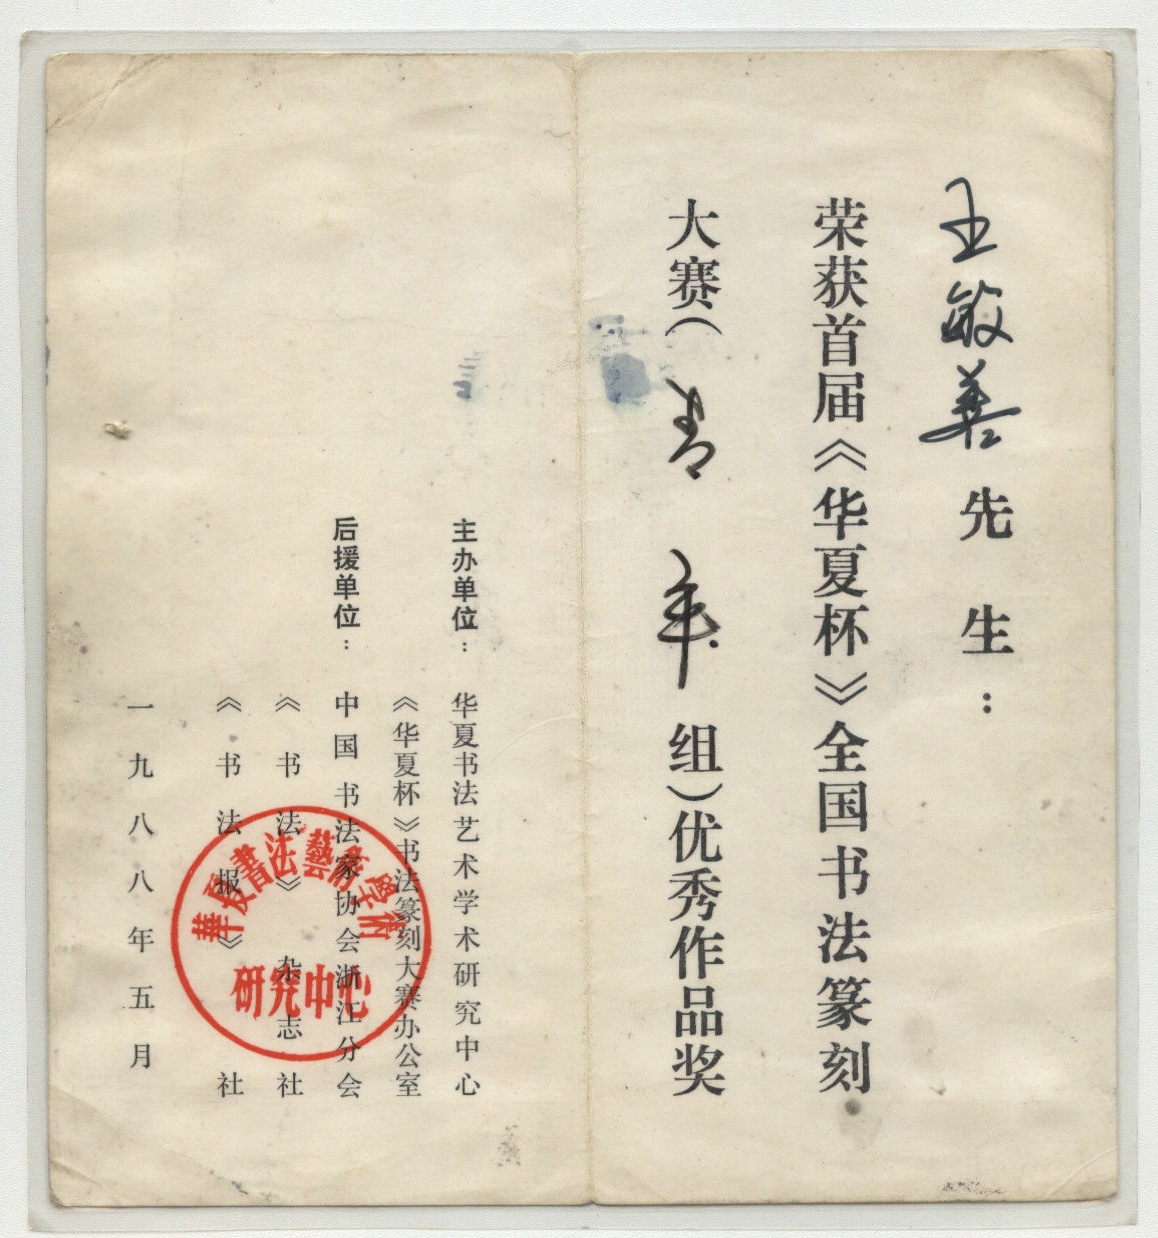 王敏善先生：
荣获首届《华夏杯》全国书法篆刻
大赛（青年组）优秀作品奖
主办单位：华夏书法艺术学术研究中心
《华夏杯》书法篆刻大赛办公室
后援单位：中国书法家协会浙江分会
《书法》杂志社
《书法报》社
一九八八年五月
華夏書法藝術學術
研究中心